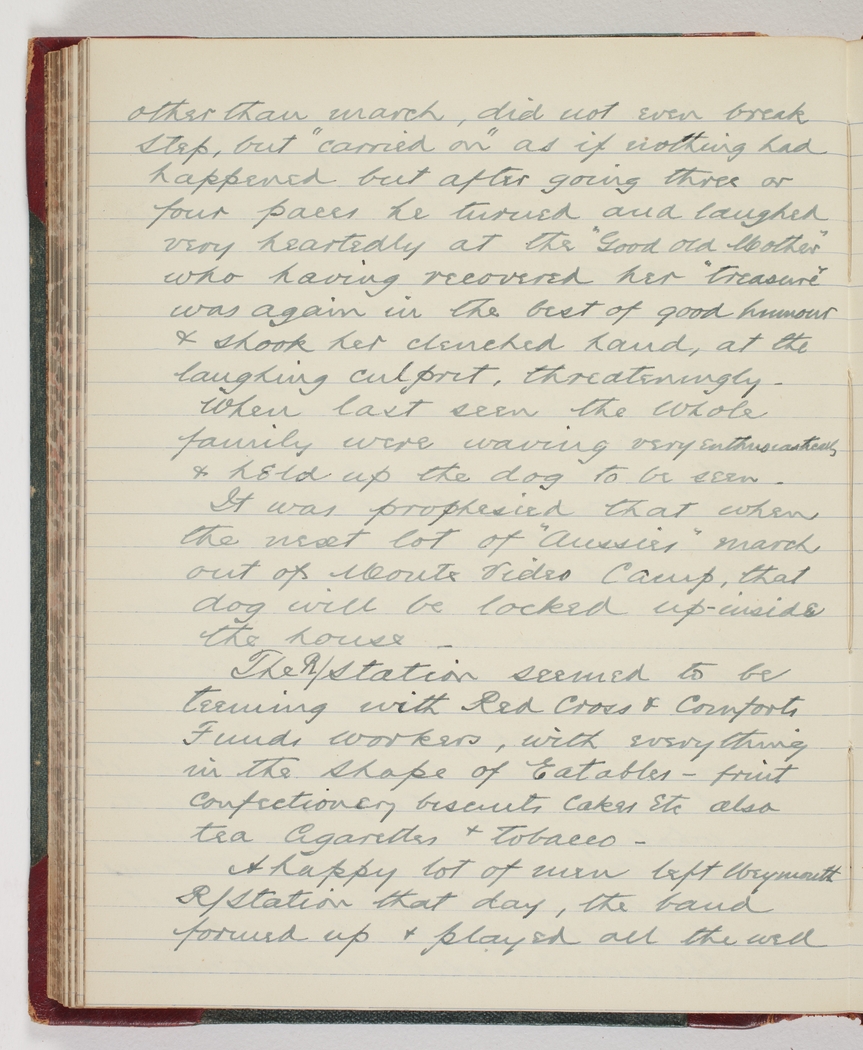 other than march, did not even break
step, but "carried on" as if nothing had
happened but after going three or
four paces he turned and laughed
very heartedly at the "Good old Mother"
who having recovered her "treasure"
was again in the best of good humour
& shook her clenched hand, at the
laughing culprit, threateningly -
When last seen the whole
family were waving very enthusiastically
& held up the dog to be seen -
It was prophesied that when
the next lot of "Aussies" march
out of Monte Video Camp, that
dog will be locked up-inside
the house -
The R/Station seemed to be
teeming with Red Cross & Comforts
Funds workers, with everything
in the shape of Eatables - fruit
confectionery biscuits Cakes Etc also
tea Cigarettes & tobacco -
A happy lot of men left Weymouth
R/Station that day, the band
formed up & played all the well